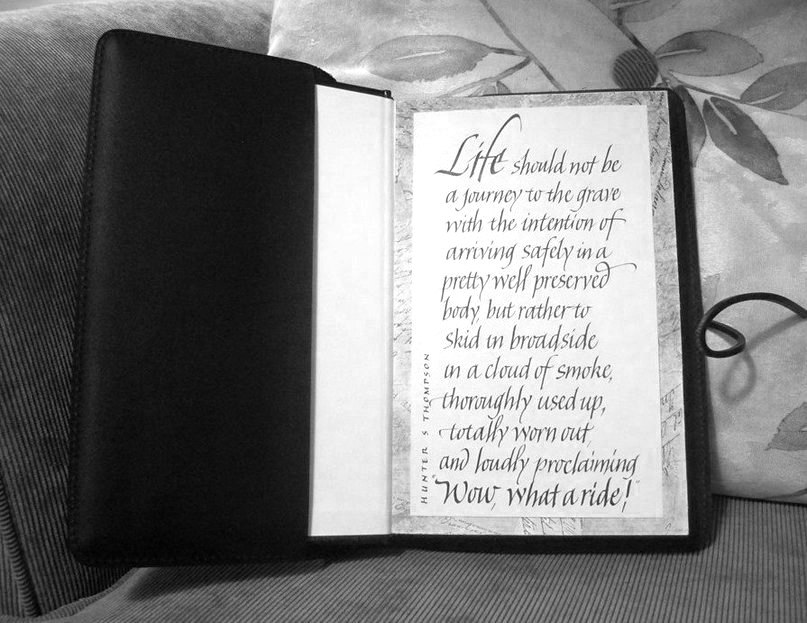 Life should not be
a journey to the grave
with the intention of
arriving safely in a
pretty well preserved
body, but rather to
skid in broadside
in a cloud of smoke,
thoroughly used up,
totally worn out,
and loudly proclaiming
"Wow, what a ride!"
HUNTER S THOMPSON